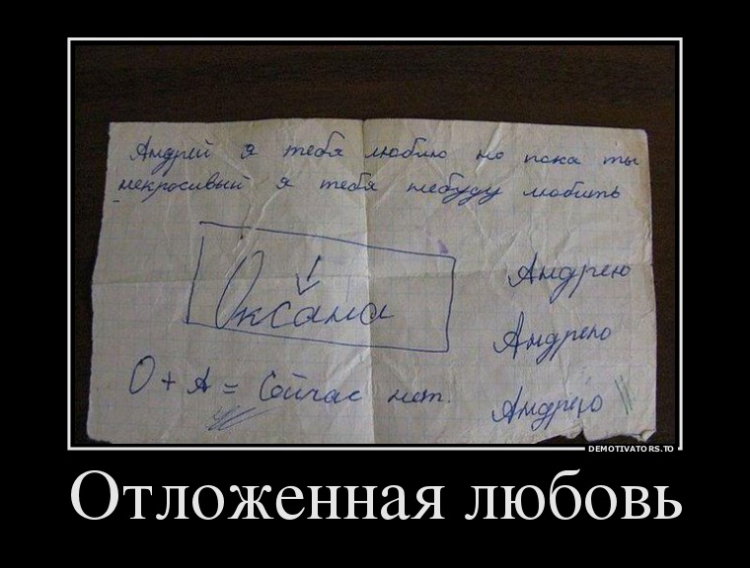 Андрей я тебя люблю но пока ты
некросивый я тебя небуду любить
Оксана
Андрею
Андрею
Андрею
О + А = Сейчас нет.
DEMOTIVATORS.TO
Отложенная любовь